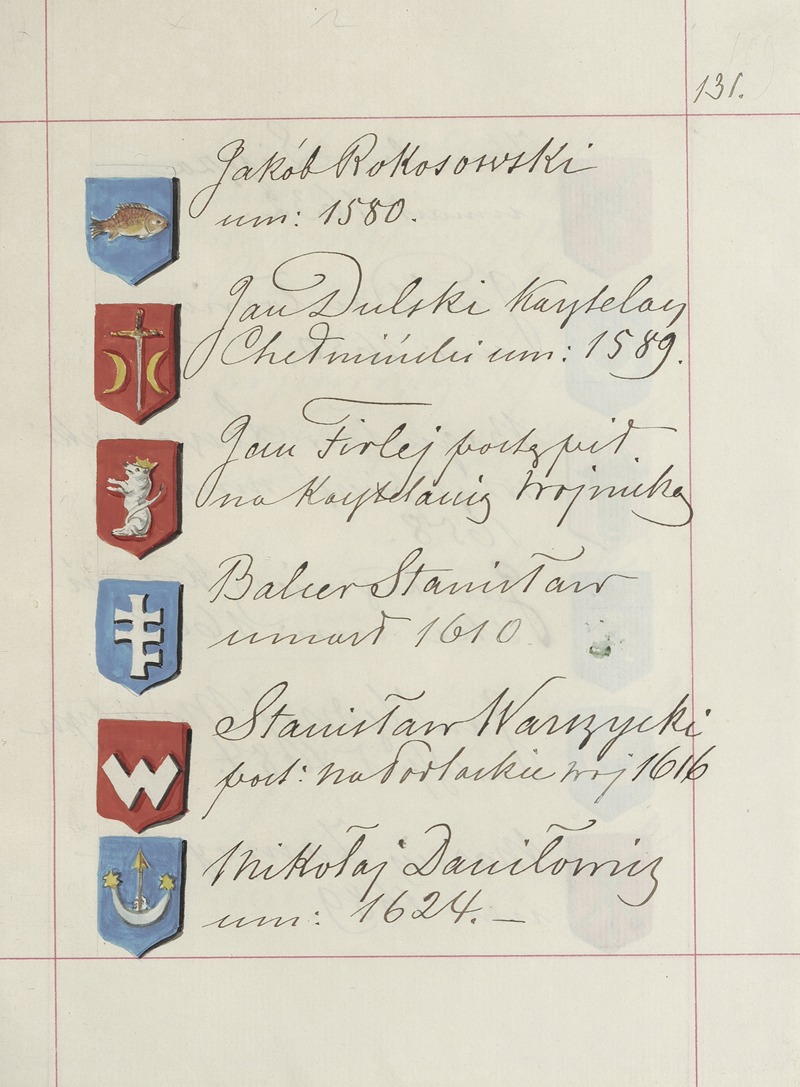 131.
Jakób Rokosowski
um: 1580.
Jan Dulski Kasztelan
Chełmiński um: 1589.
Jan Firlej postąpił
na Kasztelanią Wojnicką
Balcer Stanisław
umarł 1610
Stanisław Warszycki
post: na Podlaskie woj 1616
Mikołaj Daniłowicz
um: 1624. —